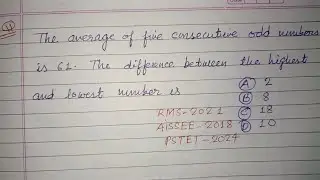 The average of five consecutive odd numbers
is 61. The difference between the highest
and lowest number is
A 2
B 8
C 18
D 10
RMS-2021
AISSEE-2018
PSTET-2024